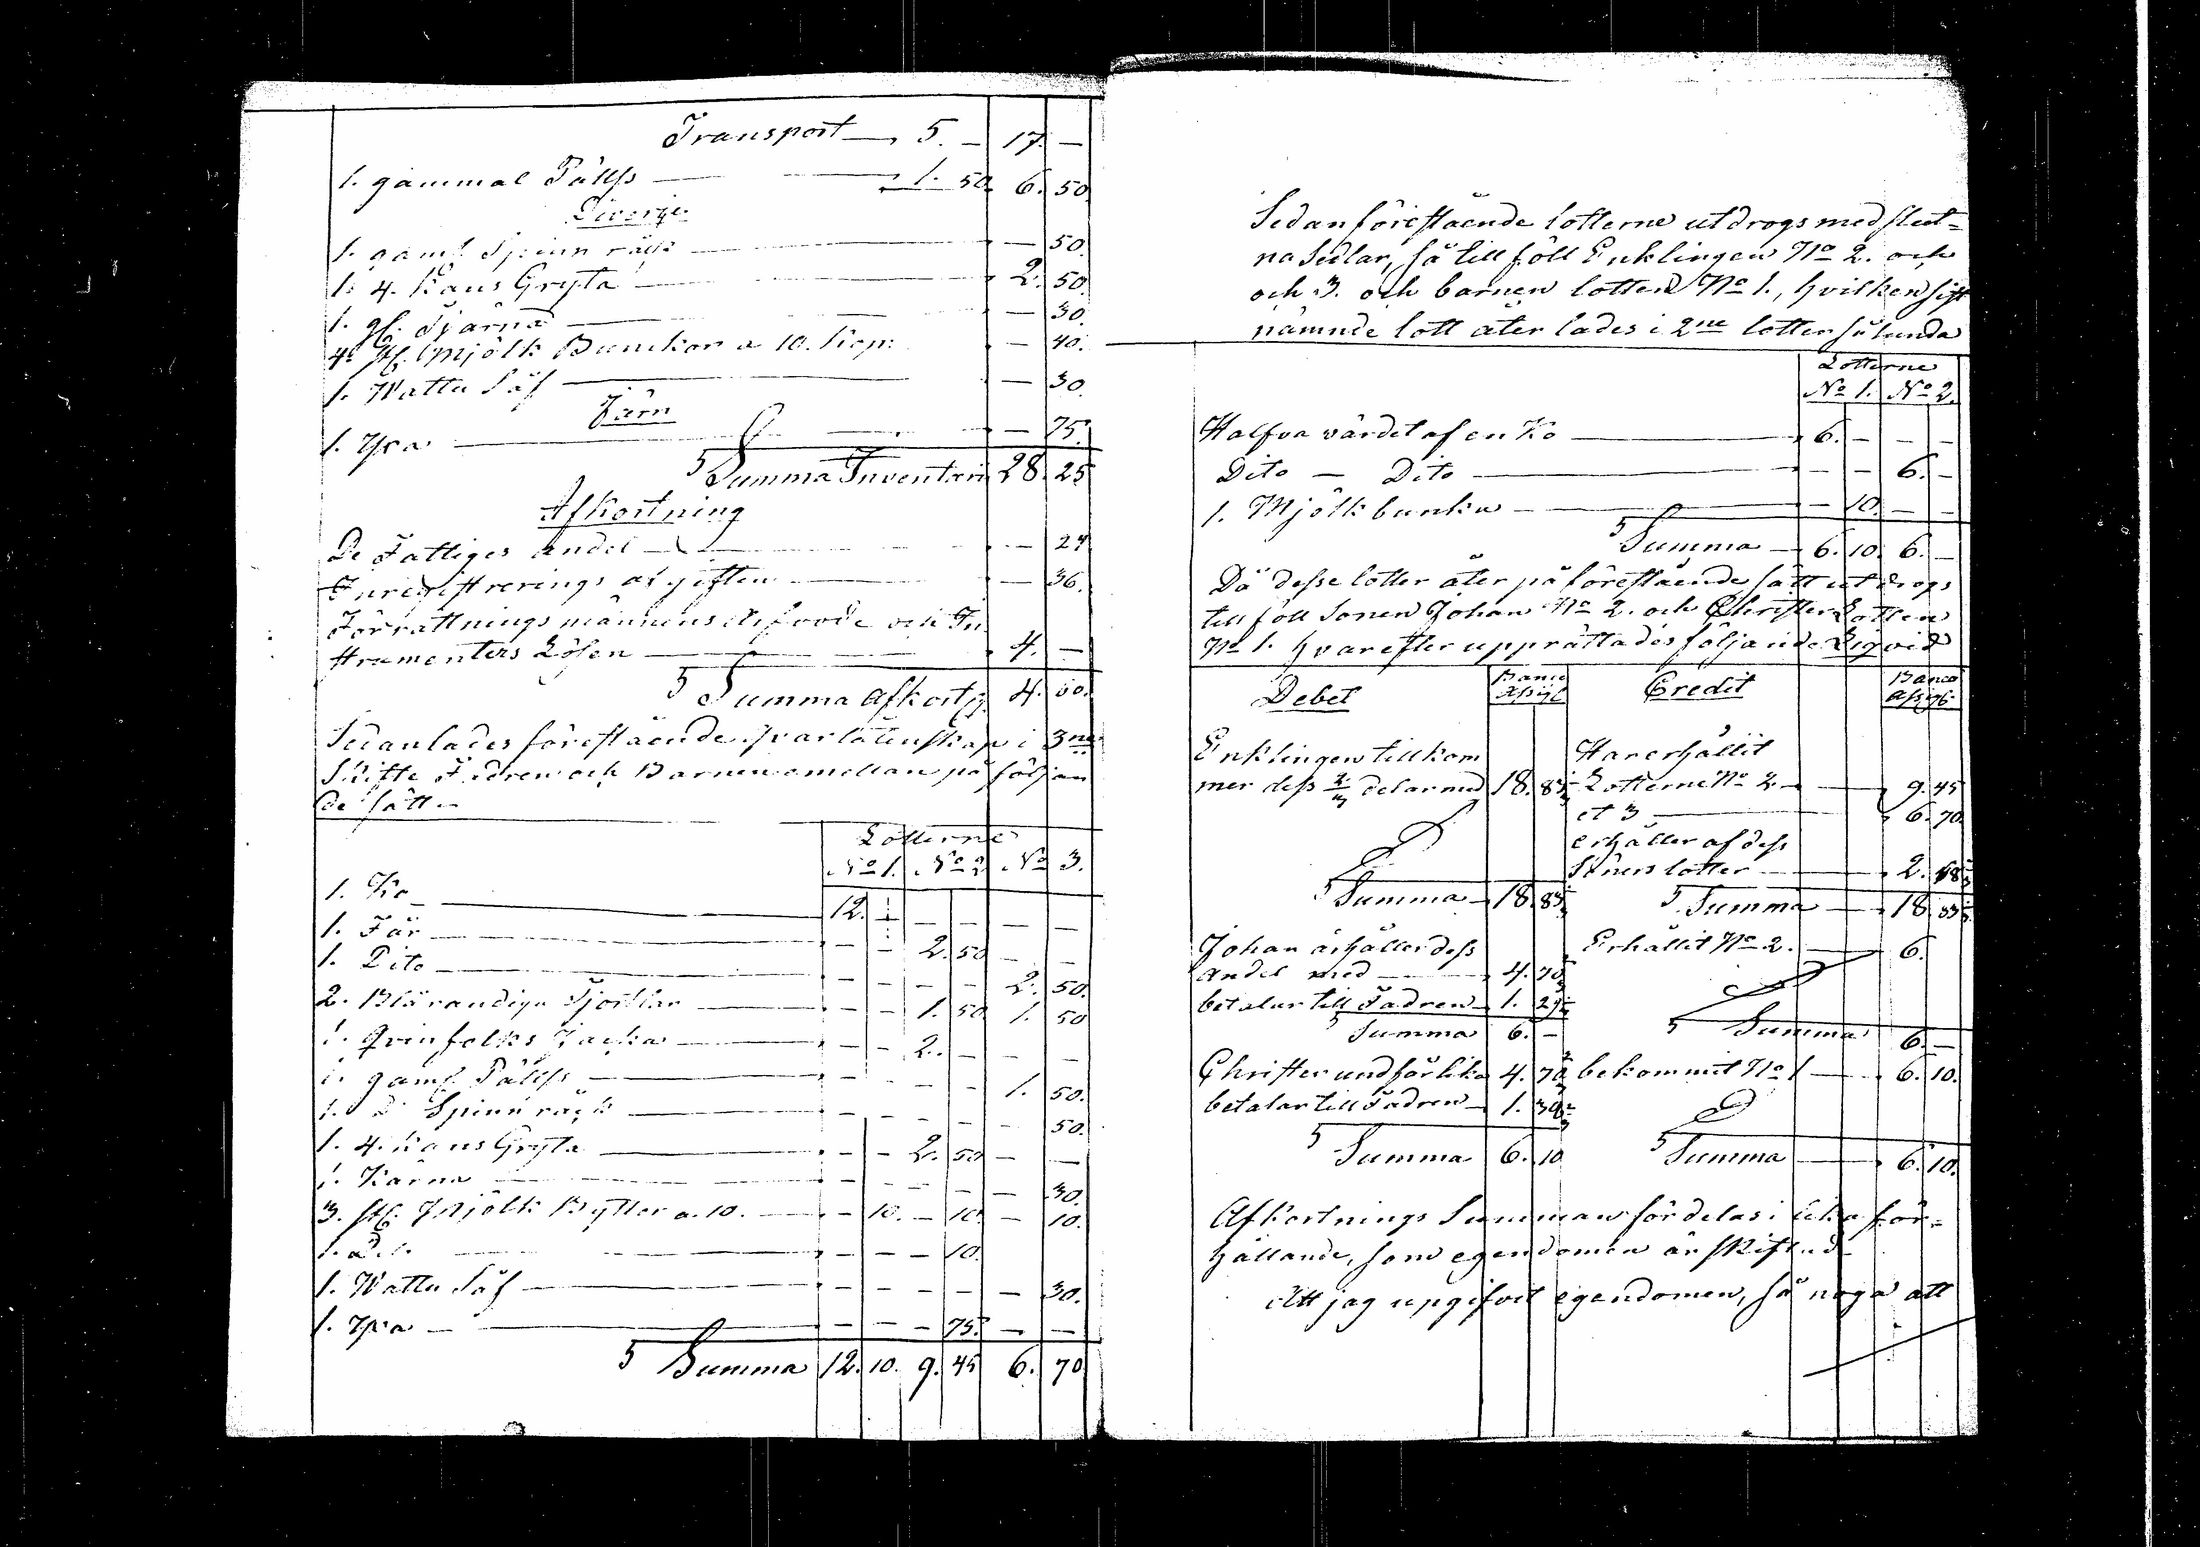 Transport — 5. — 17. —
1. gammal Pällss — 1. 50. 6. 50.
Diverse
1. gaml Spinn råck — — 50.
1. 4. Kans Gryta — 2. 50.
1. gl. Tjärna — — 30.
4. st. Mjölk Bunckor a 10. Kop: — 40.
1. Wattu Såf — — 30.
Järn
1. Yxa — — 75.
Summa Inventari 28. 25
Afkortning
De Fattiges andel — — 24
Inregistrerings afgiften — — 36.
Förrättnings männens Arfvode och In
strumenters Lösen — 4. —
Summa Afkortg 4. 60.
Sedan lades förestående qvarlåtenskap i 3ne
Skifte Fadren och Barnen emellan på följan
de sätt —
Lotterne
No 1. No 2 No 3.
1. Ko — 12. — — — — —
1. Får — — — 2. 50 — —
1. Dito — — — — — 2. 50.
2. Blårandiga Tjortlar — — — 1. 50 1. 50
1. qvinfolks Jacka — — — 2. — — —
1. gaml Pällss — — — — — 1. 50.
1. D Spinn råck — — — — — 50.
1. 4. Kans Gryta — — — 2. 50 — —
1. Kärna — — — — — — 30.
3. st. Mjölk Byttor a. 10. — — 10. — 10. — 10.
1. — — — — 10.
1. Wattu Såf — — — — — — 30.
1. Yxa — — — — 75. — —
Summa 12. 10. 9. 45 6. 70
Sedan förestående lotterne utdrogs med slut-
na Sedlar, så tillföll Enklingen No 2. och
och 3. och barnen lotten No 1., hvilken sist
nämnde lott åter lades i 2ne lotter sålunda
Lotterne
No 1. No 2.
Halfva värdet af en Ko — 6. — — —
Dito — Dito — — — 6. —
1. Mjölk bunka — — 10. — —
Summa — 6. 10. 6. —
Då desse lotter åter på förestående sätt utdrogs
tillföll Sonen Johan No 2. och Christer Lotten
No 1. hvarefter upprättades följande Liqvid
Debet Banco Assigt Credit Banco Assigt.
Enklingen tillkom Har erhållit
mer dess 2/3 delar med 18. 83 Lotterne No 2 — 9. 45
et 3 — 6. 70
erhåller af dess
Söners lotter — 2. 68
Summa — 18. 83 Summa — 18 83
Johan ärhåller dess Erhållit No 2. — 6.
andel med — 4. 70
betalar till Fadren — 1. 29
Summa 6. — Summa 6. —
Christer undfår lika 4. 70 bekommit No 1 — 6. 10.
betalar till Fadren — 1. 39
Summa 6. 10 Summa — 6. 10.
Afkortnings Summan fördelas i lika för-
hållande, som egendomen är skiftad
Att jag upgifvit egendomen, så noga att